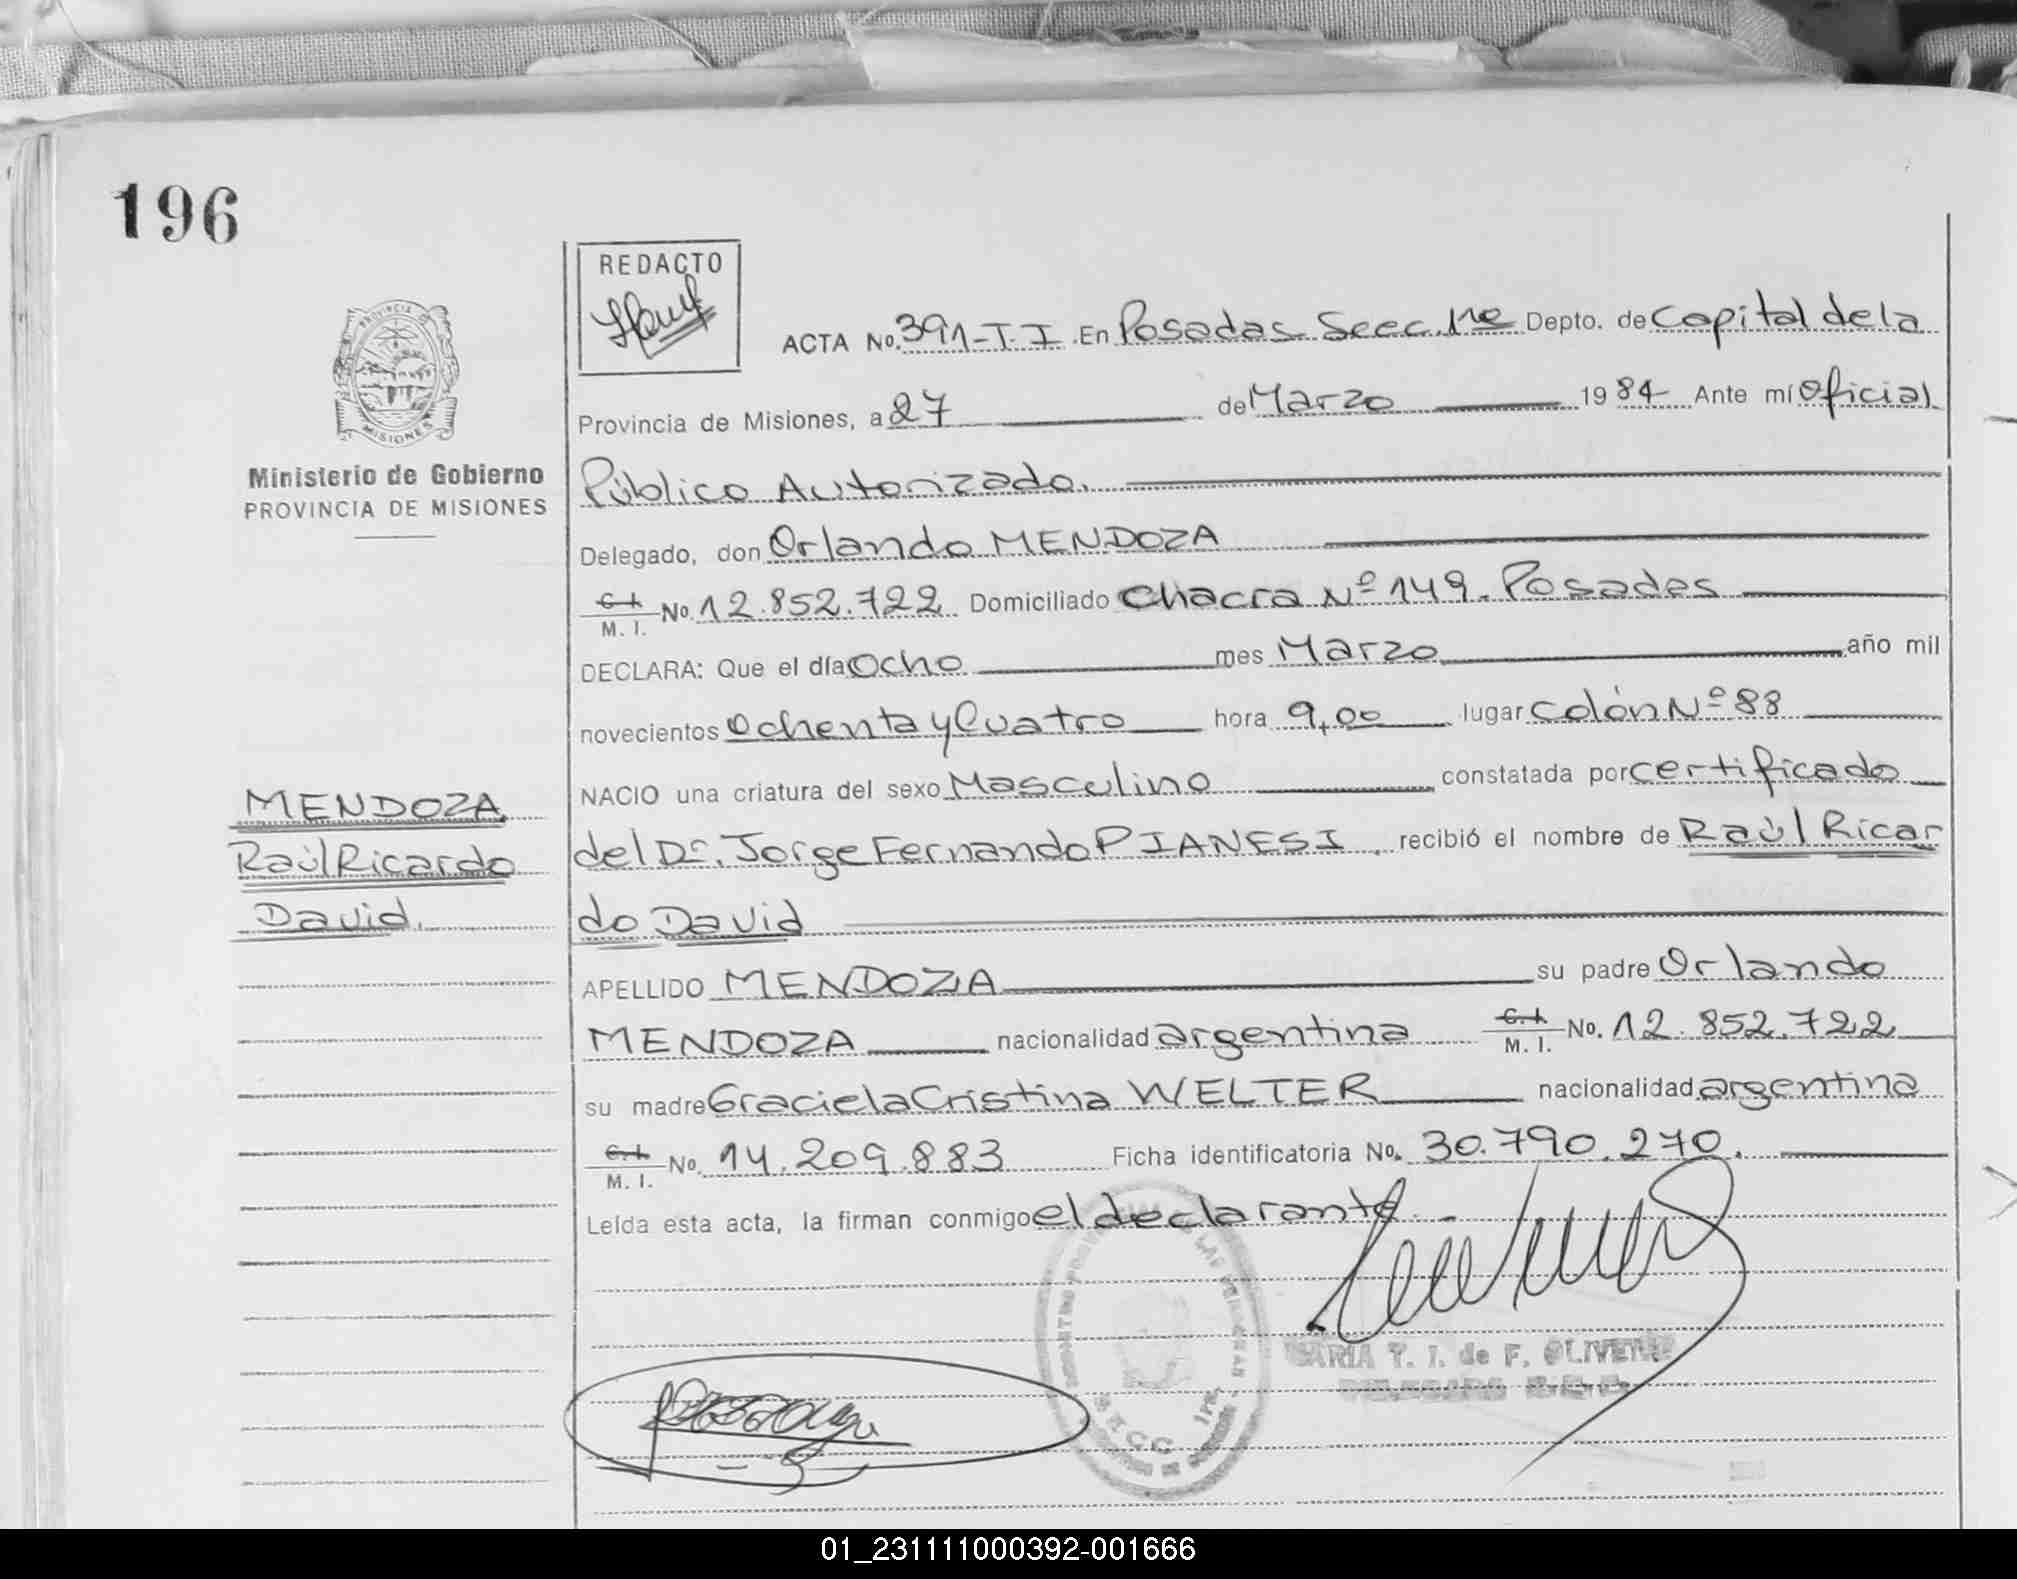 196
REDACTO
PROVINCIA
MISIONES
Ministerio de Gobierno
PROVINCIA DE MISIONES
ACTA No. 391-T. I. En Posadas Secc. 1ra Depto. de Capital de la
Provincia de Misiones, a 27 de Marzo 1984 Ante mí Oficial
Público Autorizado.
Delegado, don Orlando MENDOZA
C. I.
M. I. No. 12.852.722 Domiciliado Chacra Nº 149. Posadas
DECLARA: Que el día Ocho mes Marzo año mil
novecientos Ochenta y Cuatro hora 9,00 lugar Colón Nº 88
NACIO una criatura del sexo Masculino constatada por certificado
del Dr. Jorge Fernando PIANESI, recibió el nombre de Raúl Ricar
do David
MENDOZA
Raúl Ricardo
David.
APELLIDO MENDOZA su padre Orlando
MENDOZA nacionalidad argentina C. I. M. I. No. 12.852.722
su madre Graciela Cristina WELTER nacionalidad argentina
C. I.
M. I. No. 14.209.883 Ficha identificatoria No. 30.790.270.
Leída esta acta, la firman conmigo el declarante.-
MARIA T. I. de F. OLIVEIRA
01_231111000392-001666